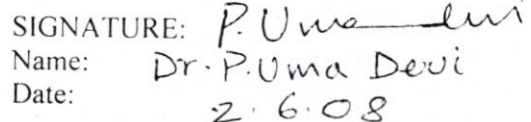 SIGNATURE: P. Uma Devi
Name: Dr. P. Uma Devi
Date: 2.6.08